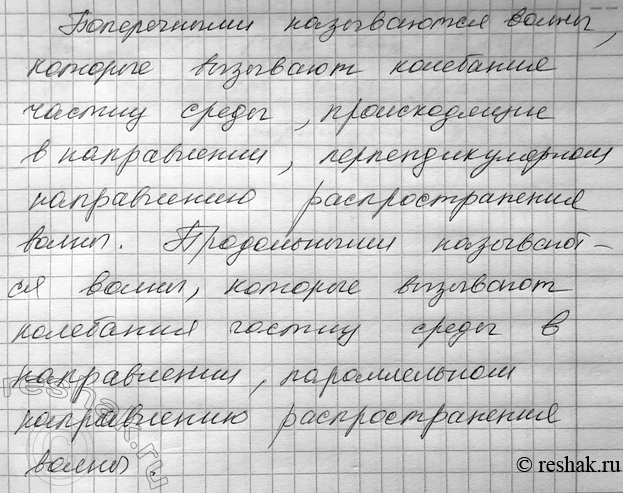 Поперечными называются волны,
которые вызывают колебания
частиц среды, происходящие
в направлении, перпендикулярном
направлению распространения
волны. Продольными называют-
ся волны, которые вызывают
колебания частиц среды в
направлении, параллельном
направлению распространения
волны
reshak.ru
© reshak.ru